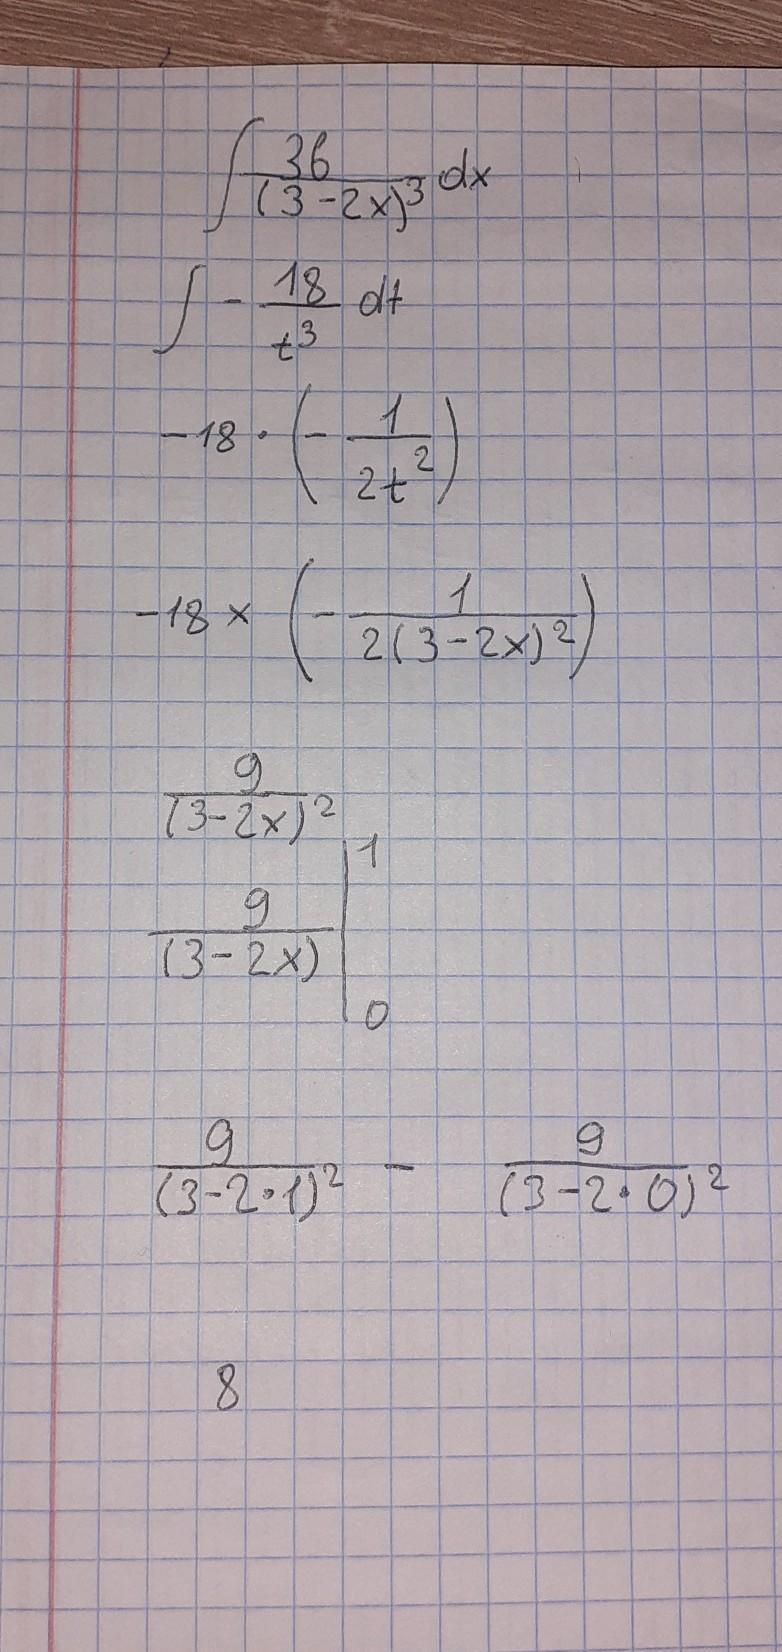 ∫ 36/(3-2x)³ dx
∫ - 18/t³ dt
-18 · (- 1/2t²)
-18 × (- 1/2(3-2x)²)
9/(3-2x)²
9/(3-2x) |₀¹
9/(3-2·1)² - 9/(3-2·0)²
8